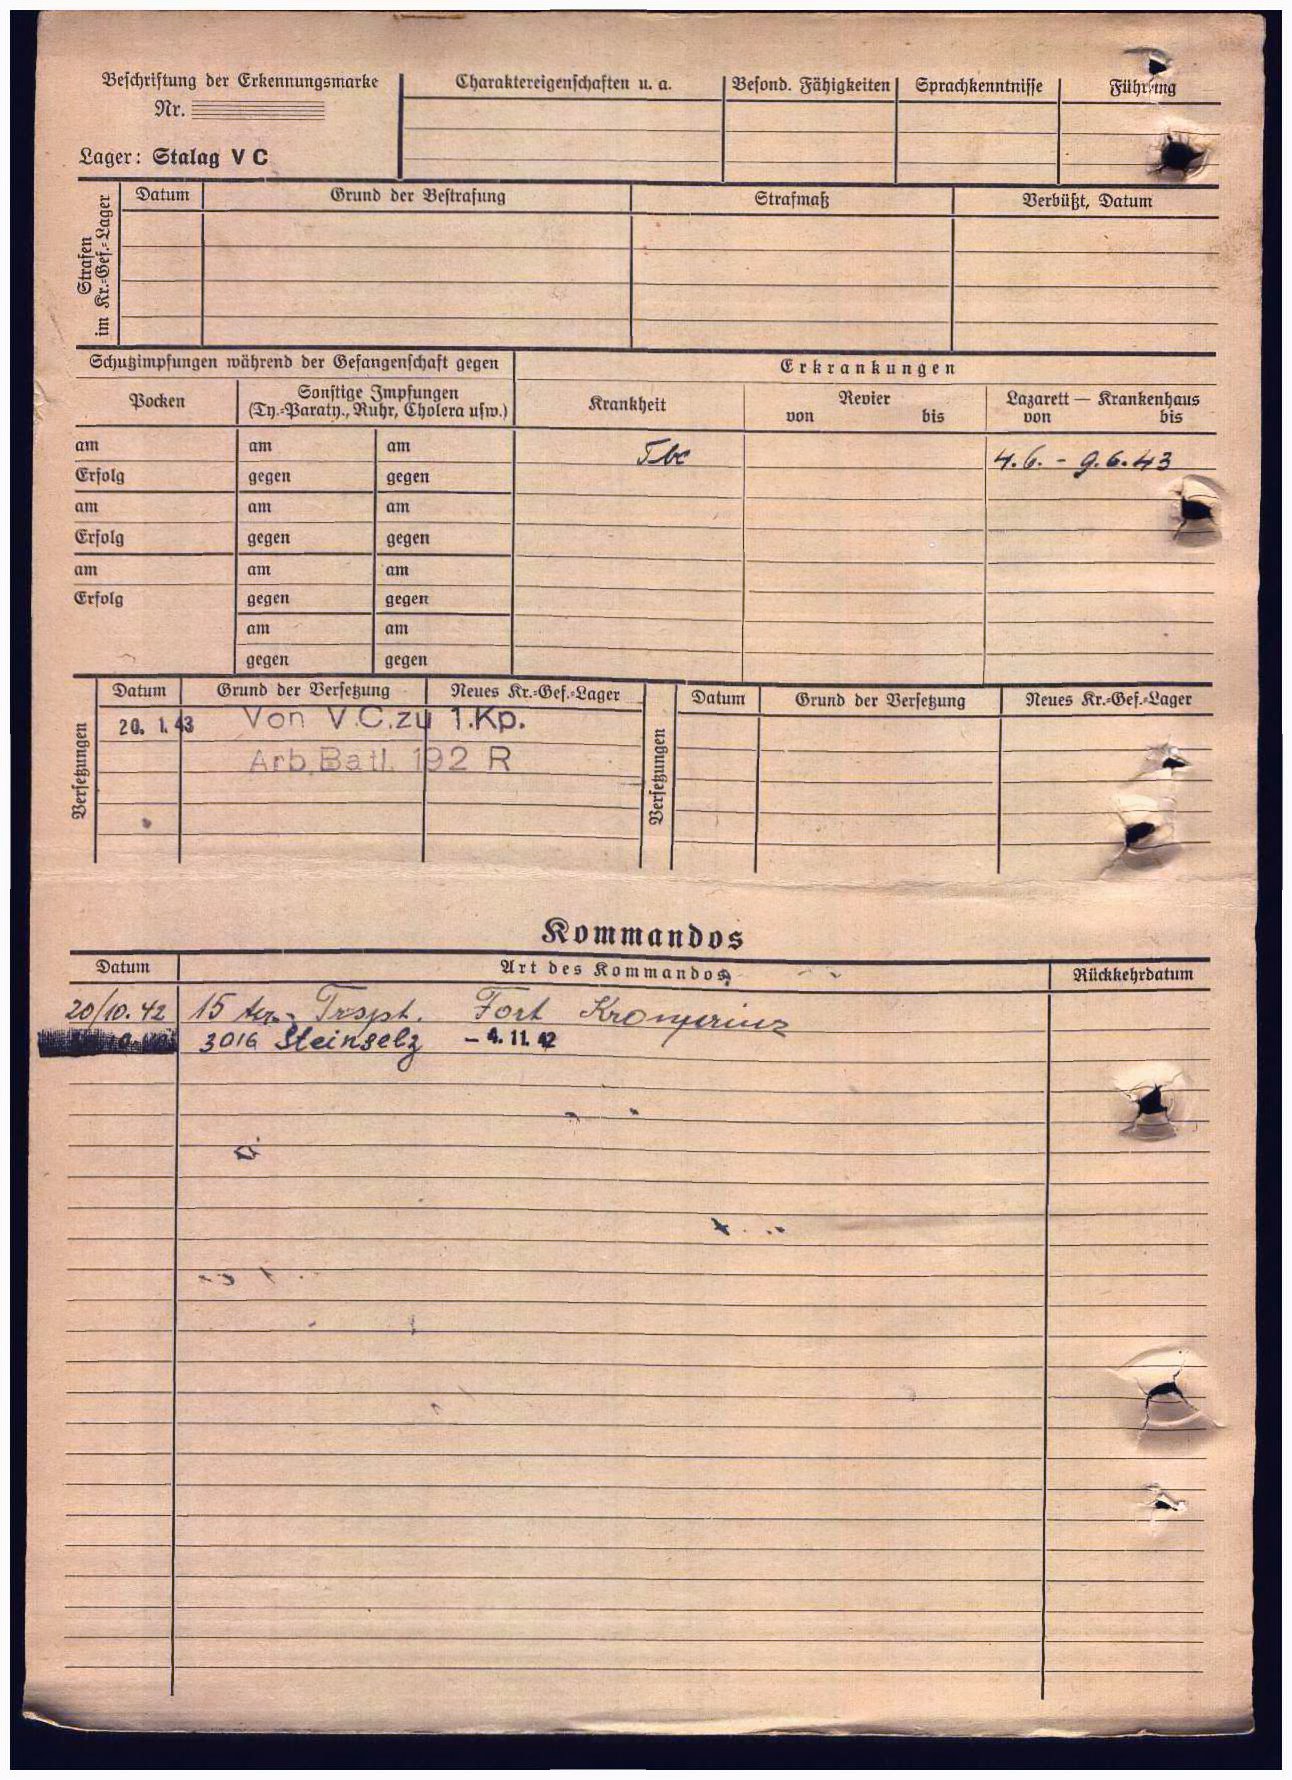 Beschriftung der Erkennungsmarke
Nr.
Lager: Stalag V C
Charaktereigenschaften u. a.
Besond. Fähigkeiten
Sprachkenntnisse
Führung
Strafen
im Kr.=Gef.=Lager
Datum
Grund der Bestrafung
Strafmaß
Verbüßt, Datum
Schutzimpfungen während der Gefangenschaft gegen
Erkrankungen
Pocken
Sonstige Impfungen
(Ty.=Paraty., Ruhr, Cholera usw.)
Krankheit
Revier
von bis
Lazarett — Krankenhaus
von bis
am am am
Tbc 4.6. - 9.6.43
Erfolg gegen gegen
am am am
Erfolg gegen gegen
am am am
Erfolg gegen gegen
am am
gegen gegen
Versetzungen
Datum Grund der Versetzung Neues Kr.=Gef.=Lager
20. 1. 43 Von V.C. zu 1.Kp.
Arb.Batl. 192 R
Versetzungen
Datum Grund der Versetzung Neues Kr.=Gef.=Lager
Kommandos
Datum Art des Kommandos Rückkehrdatum
20/10.42 15 Trspt. Fort Kronprinz
3016 Steinselz - 4. 11. 42